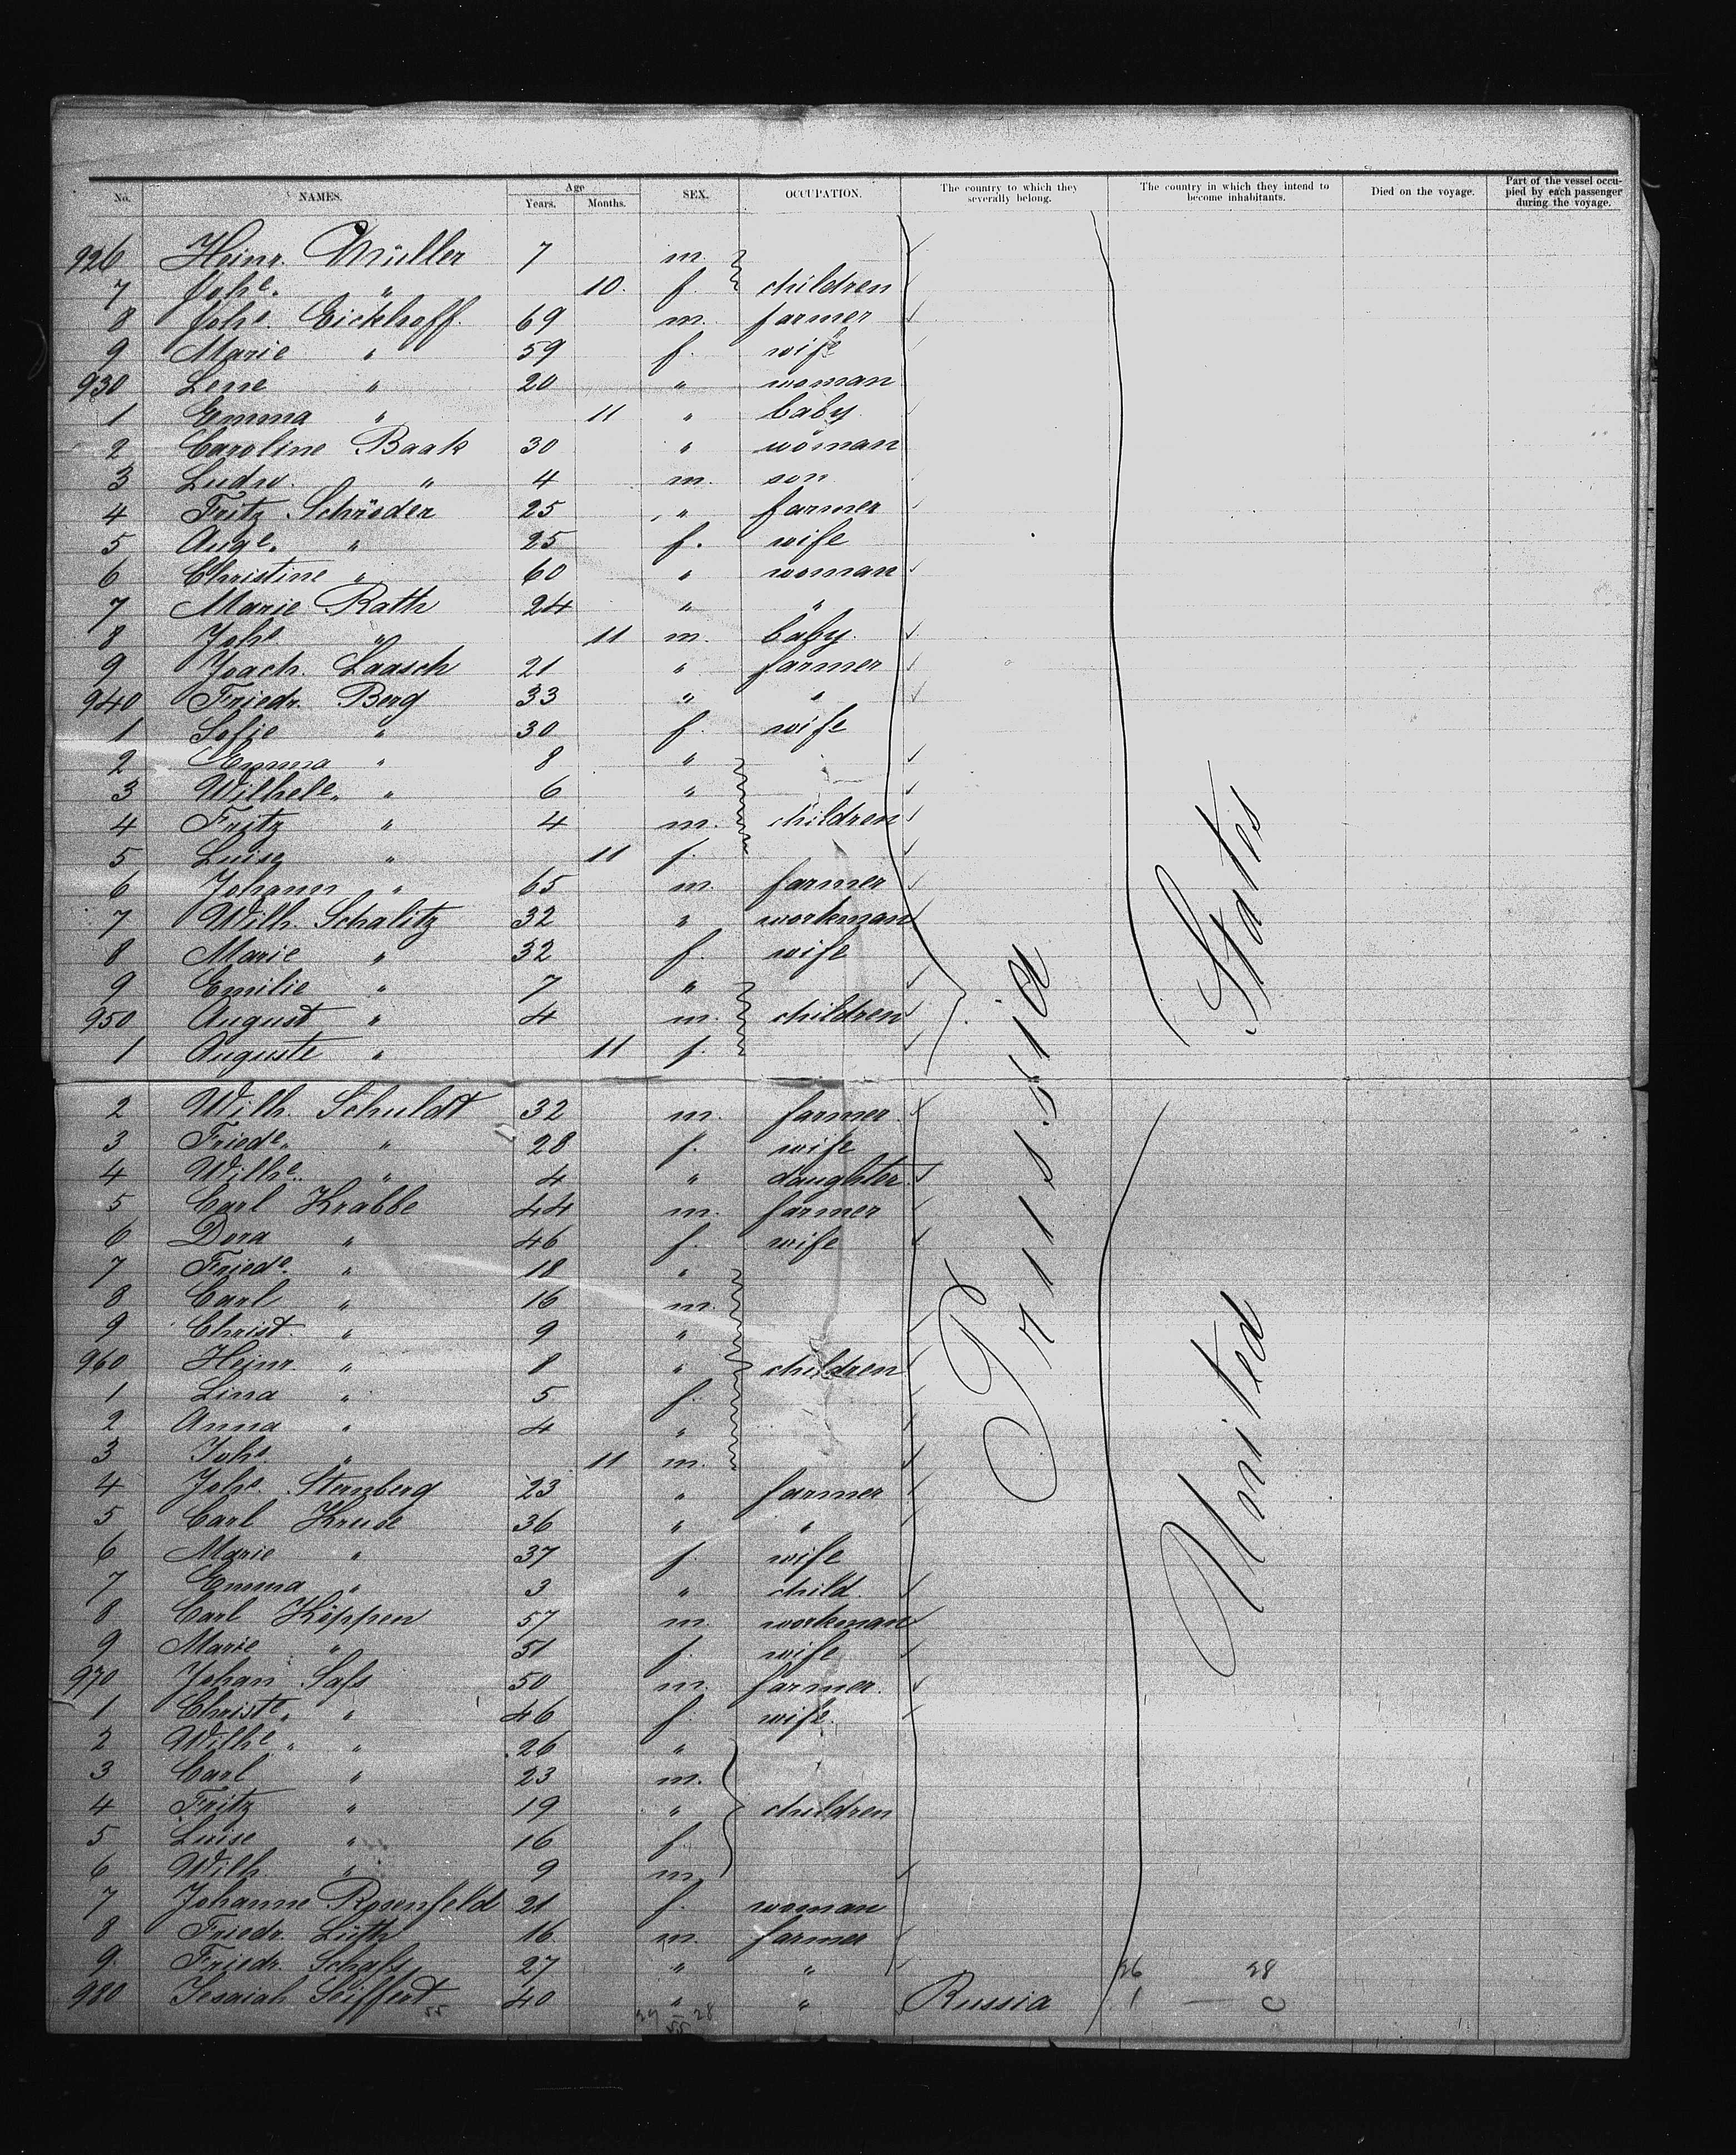 No. NAMES. Age Years. Months. SEX. OCCUPATION. The country to which they severally belong. The country in which they intend to become inhabitants. Died on the voyage. Part of the vessel occupied by each passenger during the voyage.
926 Heinr. Müller 7 m.
7 Johe. " 10. f. children
8 Johs. Eickhoff. 69 m. farmer
9 Marie " 59 f. wife
930 Lene " 20 " woman
1 Emma " 11 " baby
2 Caroline Baak 30 " woman
3 Ludw. " 4 m. son
4 Fritz Schröder 25 " farmer
5 Auge. " 25 f. wife
6 Christine " 60 " woman
7 Marie Rath 24 " "
8 Johs " 11 m. baby.
9 Joach. Laasch 21 " farmer
940 Friedr. Berg 33 " "
1 Sofie " 30 f. wife
2 Emma " 8 "
3 Wilhele. " 6 "
4 Fritz " 4 m. children
5 Luise " 11 f.
6 Johann " 65 m. farmer
7 Wilh. Schalitz 32 " workman
8 Marie " 32 f. wife
9 Emilie " 7 "
950 August " 4 m. children
1 Auguste " 11 f.
2 Wilh. Schuldt 32 m. farmer.
3 Friede. " 28 f. wife
4 Wilhe. " 4 " daughter.
5 Carl Krabbe 44 m. farmer
6 Dora " 46 f. wife
7 Friede. " 18 "
8 Carl " 16 m.
9 Christ. " 9 "
960 Heinr. " 8 " children
1 Lina " 5 f.
2 Anna " 4 "
3 Johs. " 11 m.
4 Johs. Sternberg 23 " farmer
5 Carl Kruse 36 " "
6 Marie " 37 f. wife
7 Emma " 3 " child.
8 Carl Köppen 57 m. workman
9 Marie " 51 f. wife
970 Johan Safs 50 m. farmer.
1 Christe. " 46 f. wife.
2 Wilhe. " 26 "
3 Carl " 23 m.
4 Fritz " 19 " children
5 Luise " 16 f.
6 Wilh. " 9 m.
7 Johanne Rosenfeld 21 f. woman
8 Friedr. Lüth 16 m. farmer
9. Friedr. Schafs 27 " "
980 Jesaiah Seiffert 40 " " Russia
Prussia
United States
26 28
1 — 0
55
55 28